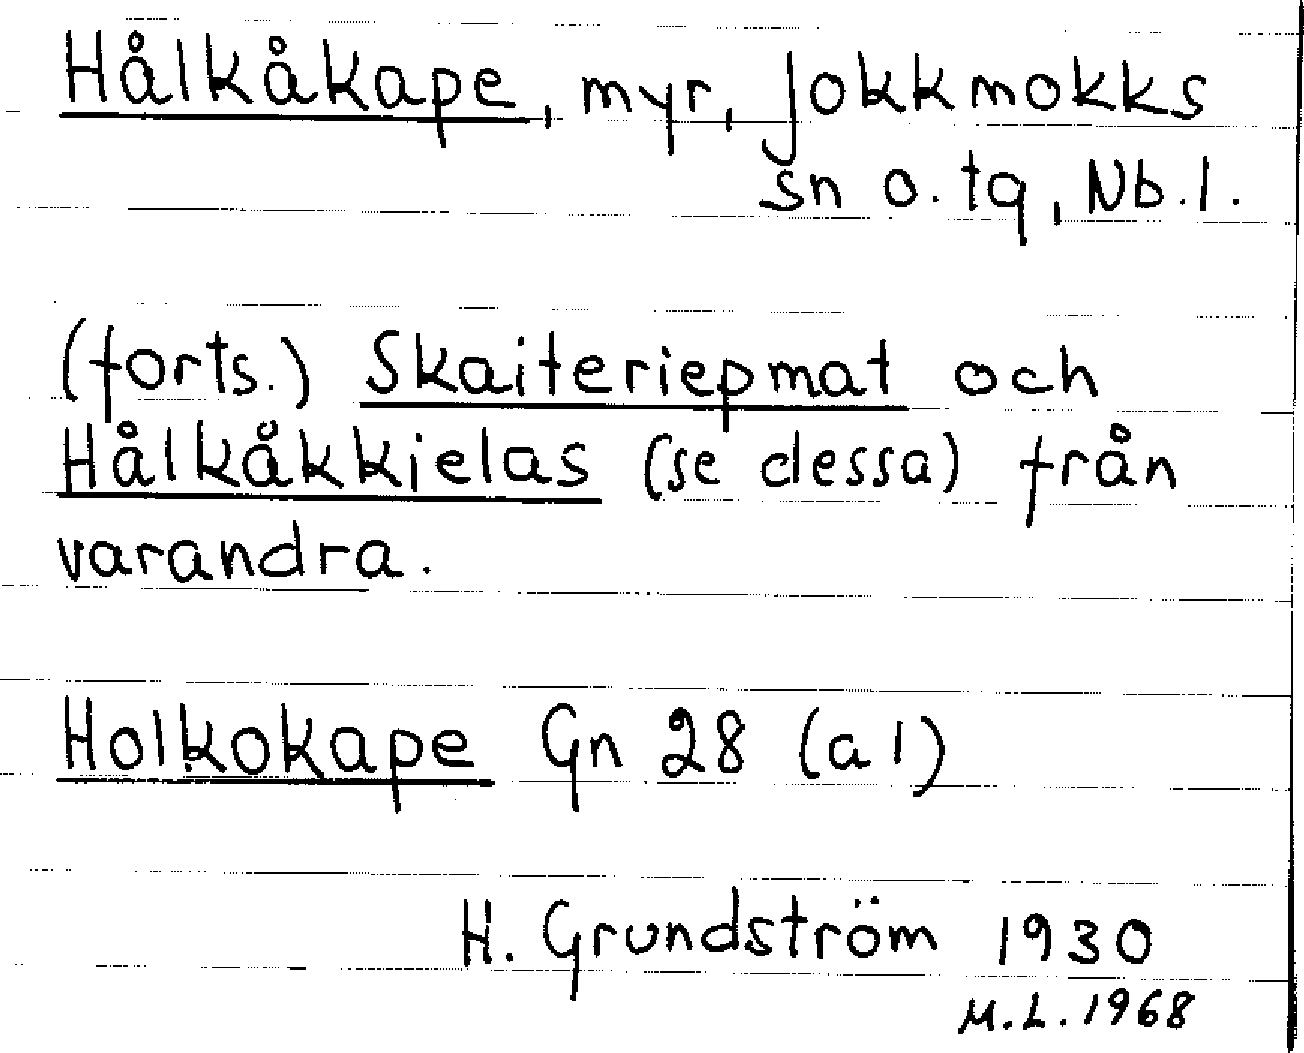 Hålkåkape, myr, Jokkmokks
sn o. tg, Nb.l.
(forts.) Skaiteriepmat och
Hålkåkkielas (se dessa) från
varandra.
Holkokape Gn 28 (a1)
H. Grundström 1930
M.L. 1968